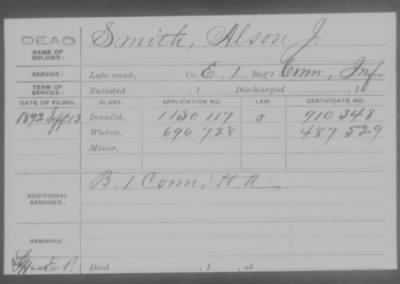 DEAD
NAME OF SOLDIER: Smith, Alson J.
SERVICE: Late rank, Co. E. 1 Reg't Conn. Inf
TERM OF SERVICE: Enlisted , 1 Discharged , 1
DATE OF FILING. CLASS. APPLICATION NO. LAW. CERTIFICATE NO.
1892 Invalid, 1130 117 910 348
Widow, 696 728 487 529
Minor,
ADDITIONAL SERVICES: B. 1 Conn. H. A.
REMARKS:
Died , 1 , at